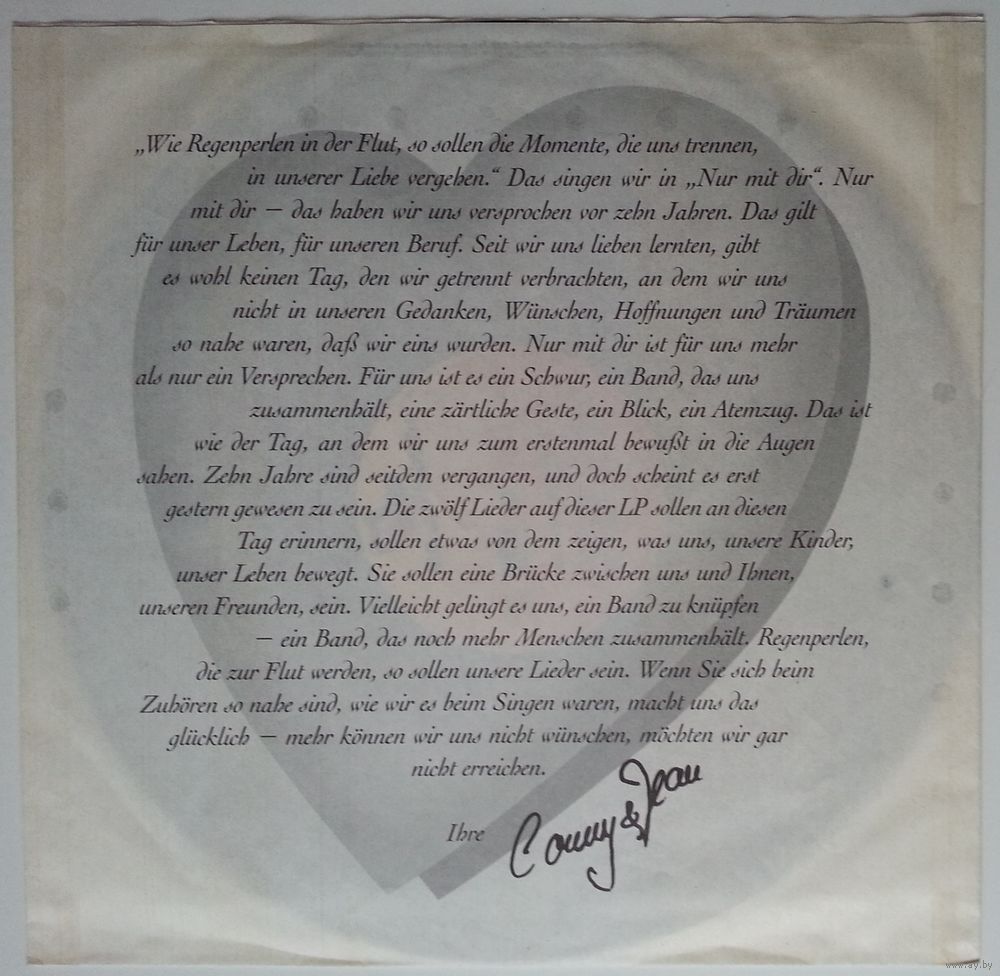 „Wie Regenperlen in der Flut, so sollen die Momente, die uns trennen,
in unserer Liebe vergehen.“ Das singen wir in „Nur mit dir“. Nur
mit dir — das haben wir uns versprochen vor zehn Jahren. Das gilt
für unser Leben, für unseren Beruf. Seit wir uns lieben lernten, gibt
es wohl keinen Tag, den wir getrennt verbrachten, an dem wir uns
nicht in unseren Gedanken, Wünschen, Hoffnungen und Träumen
so nahe waren, daß wir eins wurden. Nur mit dir ist für uns mehr
als nur ein Versprechen. Für uns ist es ein Schwur, ein Band, das uns
zusammenhält, eine zärtliche Geste, ein Blick, ein Atemzug. Das ist
wie der Tag, an dem wir uns zum erstenmal bewußt in die Augen
sahen. Zehn Jahre sind seitdem vergangen, und doch scheint es erst
gestern gewesen zu sein. Die zwölf Lieder auf dieser LP sollen an diesen
Tag erinnern, sollen etwas von dem zeigen, was uns, unsere Kinder,
unser Leben bewegt. Sie sollen eine Brücke zwischen uns und Ihnen,
unseren Freunden, sein. Vielleicht gelingt es uns, ein Band zu knüpfen
— ein Band, das noch mehr Menschen zusammenhält. Regenperlen,
die zur Flut werden, so sollen unsere Lieder sein. Wenn Sie sich beim
Zuhören so nahe sind, wie wir es beim Singen waren, macht uns das
glücklich — mehr können wir uns nicht wünschen, möchten wir gar
nicht erreichen.
Ihre Conny & Jean
www.ay.by